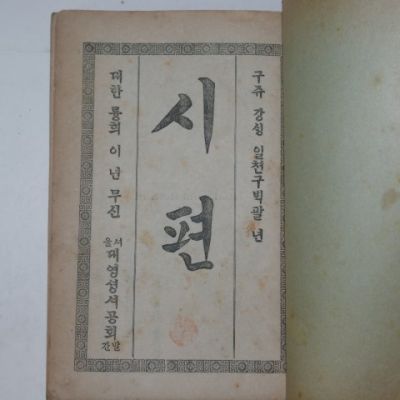 구쥬 강싱 일천구빅팔 년
시편
대한 륭희 이 년 무신
셔울
대영셩셔공회
발간